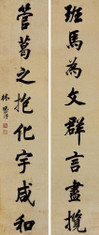 班馬為文群言盡攬
管葛之抱化宇咸和
林